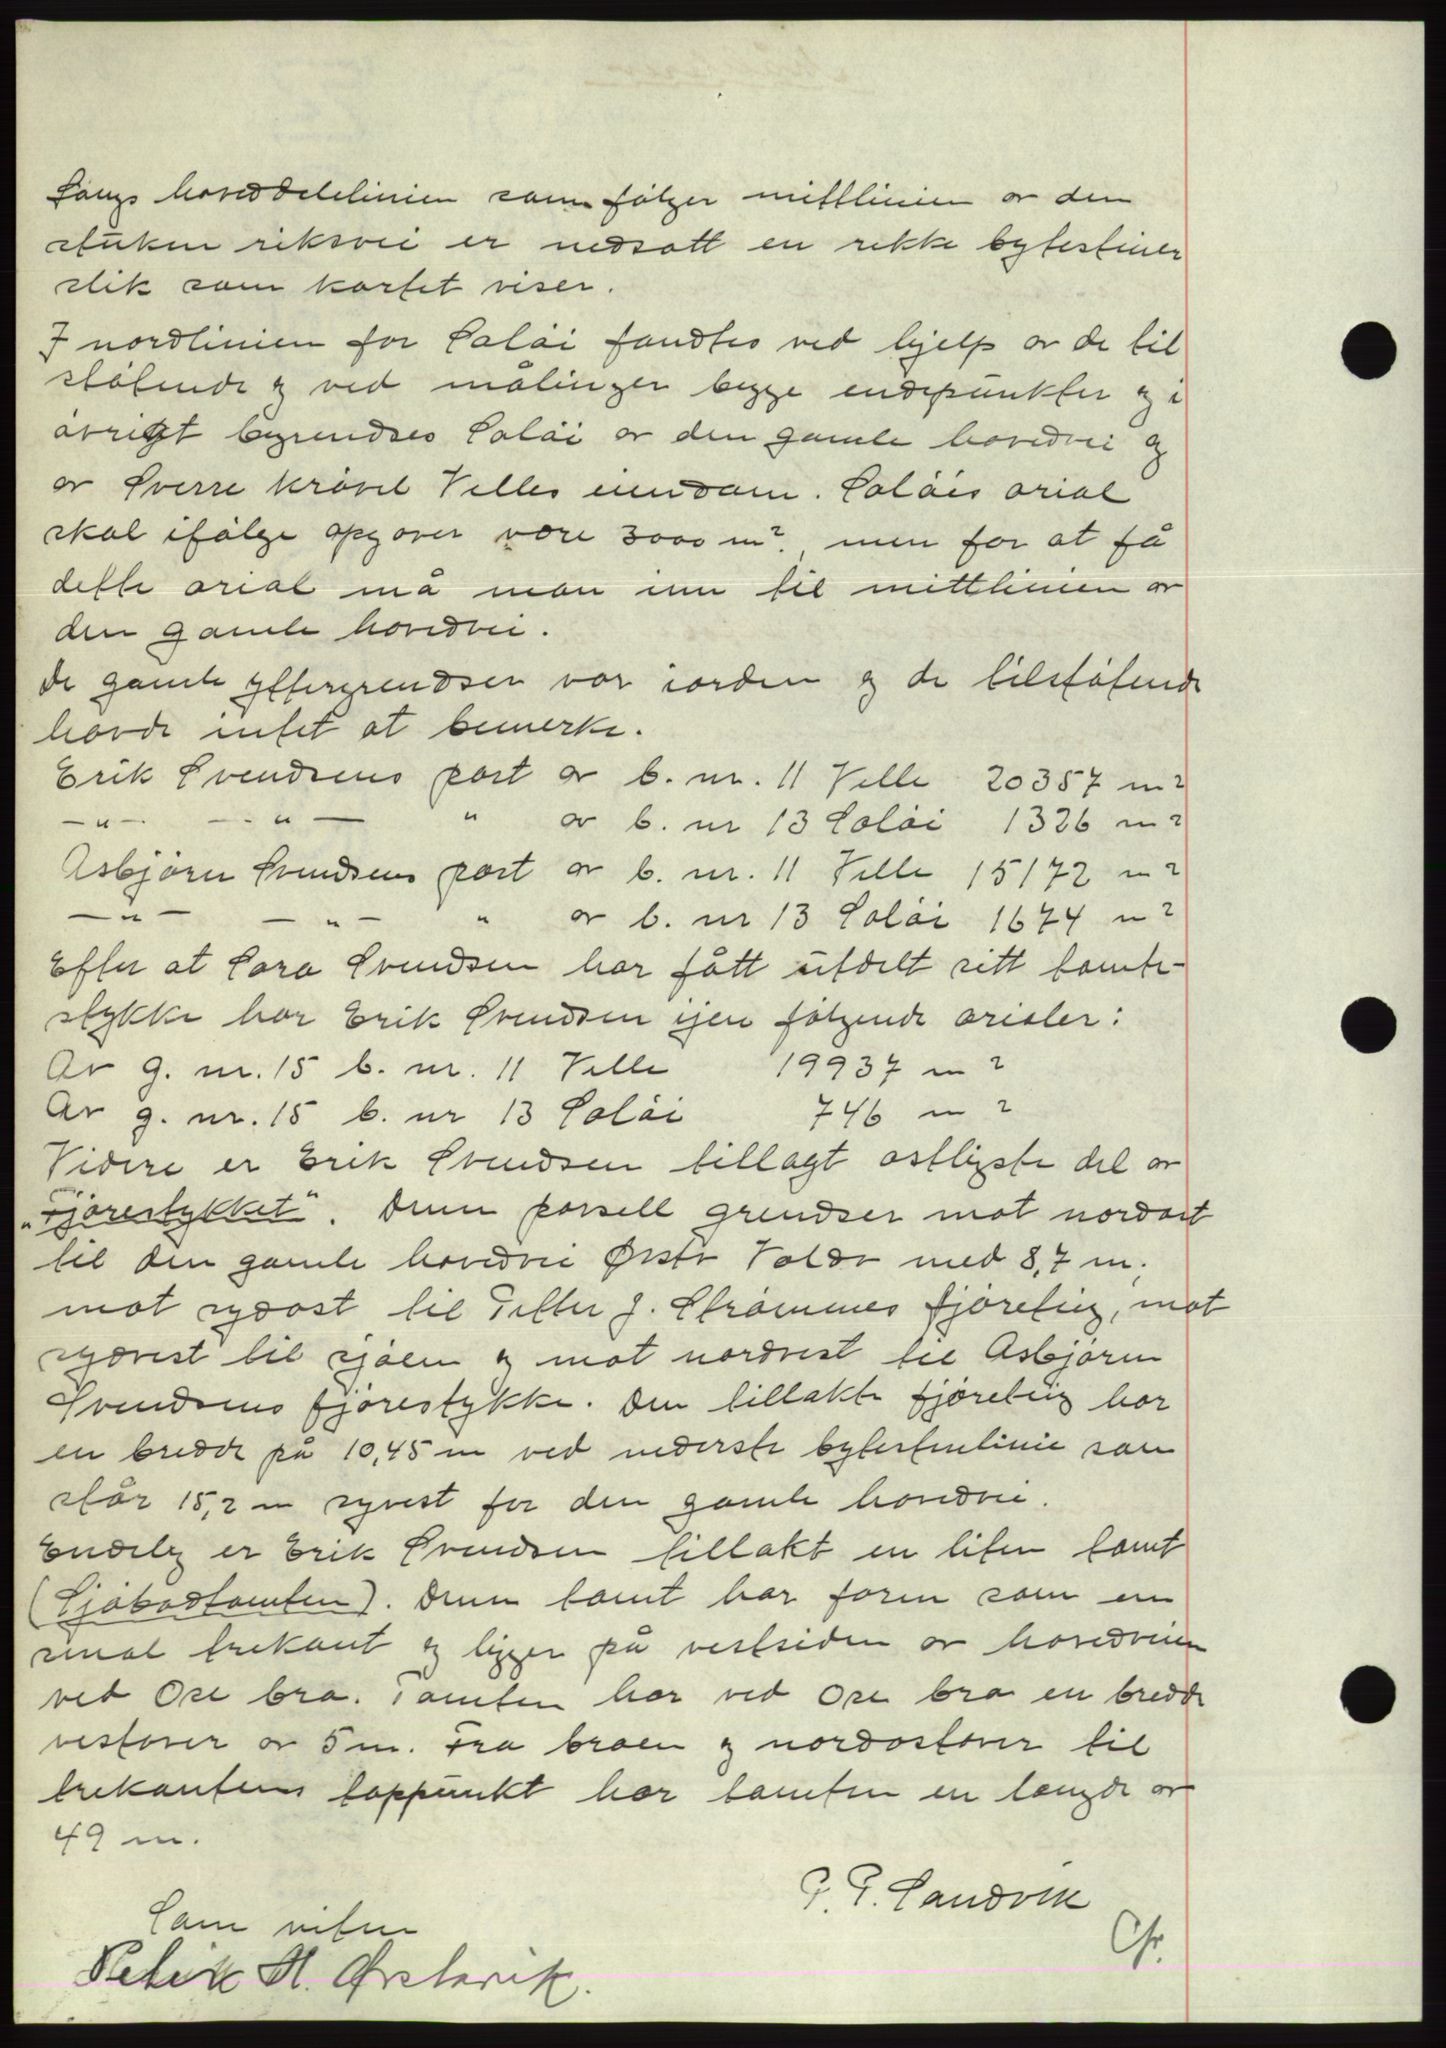 Langs hoveddelelinien som følger mittlinien av den
stukne riksvei er nedsatt en rekke bytesteiner
slik som kartet viser.
I nordlinien for Saløi fandtes ved hjelp av de til
støtende og ved målinger begge endepunkter og i
øvrigt begrendses Saløi av den gamle hovedvei og
av Sverre Krøvel Velles eiendom. Saløies arial
skal ifølge opgaver være 3000 m², men for at få
dette arial må man inn til mittlinien av
den gamle hovedvei.
De gamle yttergrendser var iorden og de tilstøtende
havde intet at bemerke.
Erik Svendsens part av b. nr. 11 Velle 20357 m²
-"- -"- " av b. nr 13 Saløi 1326 m²
Asbjørn Svendsens part av b. nr. 11 Velle 15172 m²
-"- -"- " av b. nr 13 Saløi 1674 m²
Efter at Sara Svendsen har fått utdelt sitt tomte-
stykke har Erik Svendsen igjen følgende arialer:
Av g. nr. 15 b. nr. 11 Velle 19937 m²
Av g. nr. 15 b. nr 13 Saløi 746 m²
Videre er Erik Svendsen tillagt østligste del av
"Fjørestykket". Denne parsell grendser mot nordøst
til den gamle hovedvei Ørsta Volda med 8,7 m,
mot sydøst til Petter J. Strømmes fjøreteig, mot
sydvest til sjøen og mot nordvest til Asbjørn
Svendsens fjørestykke. Den tillakte fjøreteig har
en bredde på 10,45 m ved nederste bytesteinlinie som
står 15,2 m syvest for den gamle hovedvei.
Endelig er Erik Svendsen tillakt en liten tomt
(Sjøbodtomten). Denne tomt har form som en
smal trekant og ligger på vestsiden av hovedveien
ved Ose bro. Tomten har ved Ose bro en bredde
vestover av 5 m. Fra broen og nordostover til
trekantens toppunkt har tomten en længde av
49 m.
P. P. Sandvik
Som vitne
Petter H. Ørstavik.